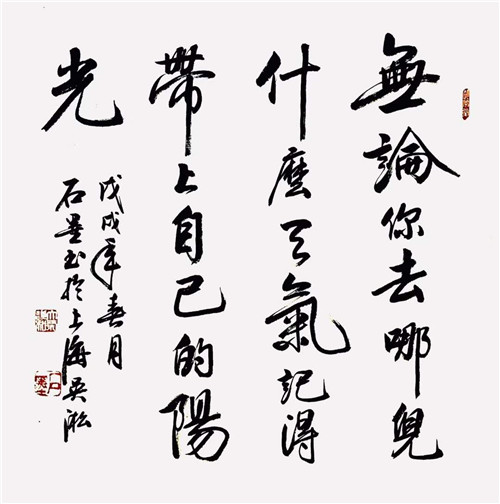 無論你去哪兒
什麼天氣記得
帶上自己的陽
光
戊戌年春月
石墨书於上海吳淞